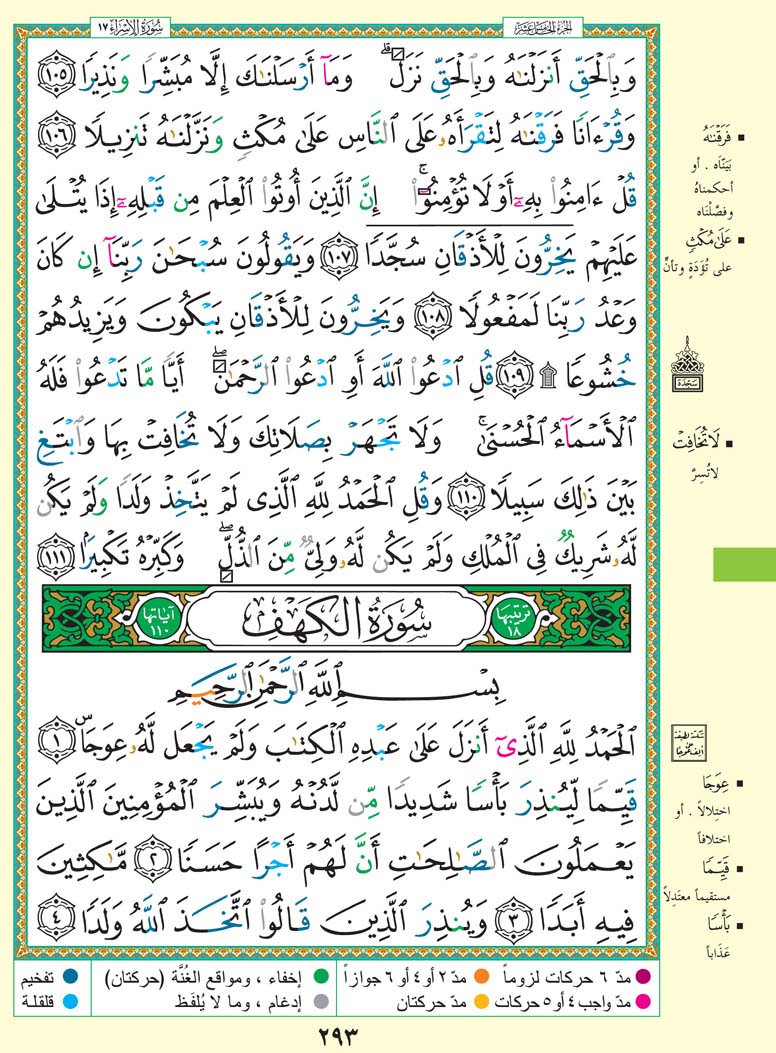 سُورَةُ الإِسْرَاءِ ١٧
الجُزْءُ الخَامِسَ عَشَرَ
وَبِٱلْحَقِّ أَنزَلْنَٰهُ وَبِٱلْحَقِّ نَزَلَ ۗ وَمَآ أَرْسَلْنَٰكَ إِلَّا مُبَشِّرًا وَنَذِيرًا ١٠٥
وَقُرْءَانًا فَرَقْنَٰهُ لِتَقْرَأَهُۥ عَلَى ٱلنَّاسِ عَلَىٰ مُكْثٍ وَنَزَّلْنَٰهُ تَنزِيلًا ١٠٦
قُلْ ءَامِنُوا۟ بِهِۦٓ أَوْ لَا تُؤْمِنُوٓا۟ ۚ إِنَّ ٱلَّذِينَ أُوتُوا۟ ٱلْعِلْمَ مِن قَبْلِهِۦٓ إِذَا يُتْلَىٰ
عَلَيْهِمْ يَخِرُّونَ لِلْأَذْقَانِ سُجَّدًا ١٠٧ وَيَقُولُونَ سُبْحَٰنَ رَبِّنَآ إِن كَانَ
وَعْدُ رَبِّنَا لَمَفْعُولًا ١٠٨ وَيَخِرُّونَ لِلْأَذْقَانِ يَبْكُونَ وَيَزِيدُهُمْ
خُشُوعًا ۩ ١٠٩ قُلِ ٱدْعُوا۟ ٱللَّهَ أَوِ ٱدْعُوا۟ ٱلرَّحْمَٰنَ ۖ أَيًّا مَّا تَدْعُوا۟ فَلَهُ
ٱلْأَسْمَآءُ ٱلْحُسْنَىٰ ۚ وَلَا تَجْهَرْ بِصَلَاتِكَ وَلَا تُخَافِتْ بِهَا وَٱبْتَغِ
بَيْنَ ذَٰلِكَ سَبِيلًا ١١٠ وَقُلِ ٱلْحَمْدُ لِلَّهِ ٱلَّذِى لَمْ يَتَّخِذْ وَلَدًا وَلَمْ يَكُن
لَّهُۥ شَرِيكٌ فِى ٱلْمُلْكِ وَلَمْ يَكُن لَّهُۥ وَلِىٌّ مِّنَ ٱلذُّلِّ ۖ وَكَبِّرْهُ تَكْبِيرًۢا ١١١
ترتيبها ١٨ سُورَةُ الكَهْفِ آياتها ١١٠
بِسْمِ ٱللَّهِ ٱلرَّحْمَٰنِ ٱلرَّحِيمِ
ٱلْحَمْدُ لِلَّهِ ٱلَّذِىٓ أَنزَلَ عَلَىٰ عَبْدِهِ ٱلْكِتَٰبَ وَلَمْ يَجْعَل لَّهُۥ عِوَجَا ۜ ١
قَيِّمًا لِّيُنذِرَ بَأْسًا شَدِيدًا مِّن لَّدُنْهُ وَيُبَشِّرَ ٱلْمُؤْمِنِينَ ٱلَّذِينَ
يَعْمَلُونَ ٱلصَّٰلِحَٰتِ أَنَّ لَهُمْ أَجْرًا حَسَنًا ٢ مَّٰكِثِينَ
فِيهِ أَبَدًا ٣ وَيُنذِرَ ٱلَّذِينَ قَالُوا۟ ٱتَّخَذَ ٱللَّهُ وَلَدًا ٤
▪ فَرَقْنَٰهُ
بَيَّنَّاه . أو
أحكمناهُ
وفصَّلْنَاه
▪ عَلَىٰ مُكْثٍ
على تُؤَدَةٍ وتأنٍّ
سَجْدَة
▪ لَا تُخَافِتْ
لا تُسِرَّ
▪ عِوَجَا
اختِلالاً . أو
اختلافاً
▪ قَيِّمًا
مستقيماً معتدِلاً
▪ بَأْسًا
عَذَاباً
مدّ ٦ حركات لزوماً ● مدّ ٢ أو ٤ أو ٦ جوازاً ● إخفاء ، ومواقع الغُنَّة (حركتان) ● تفخيم
مدّ واجب ٤ أو ٥ حركات ● مدّ حركتان ● إدغام ، وما لا يُلفَظ ● قلقلة
٢٩٣